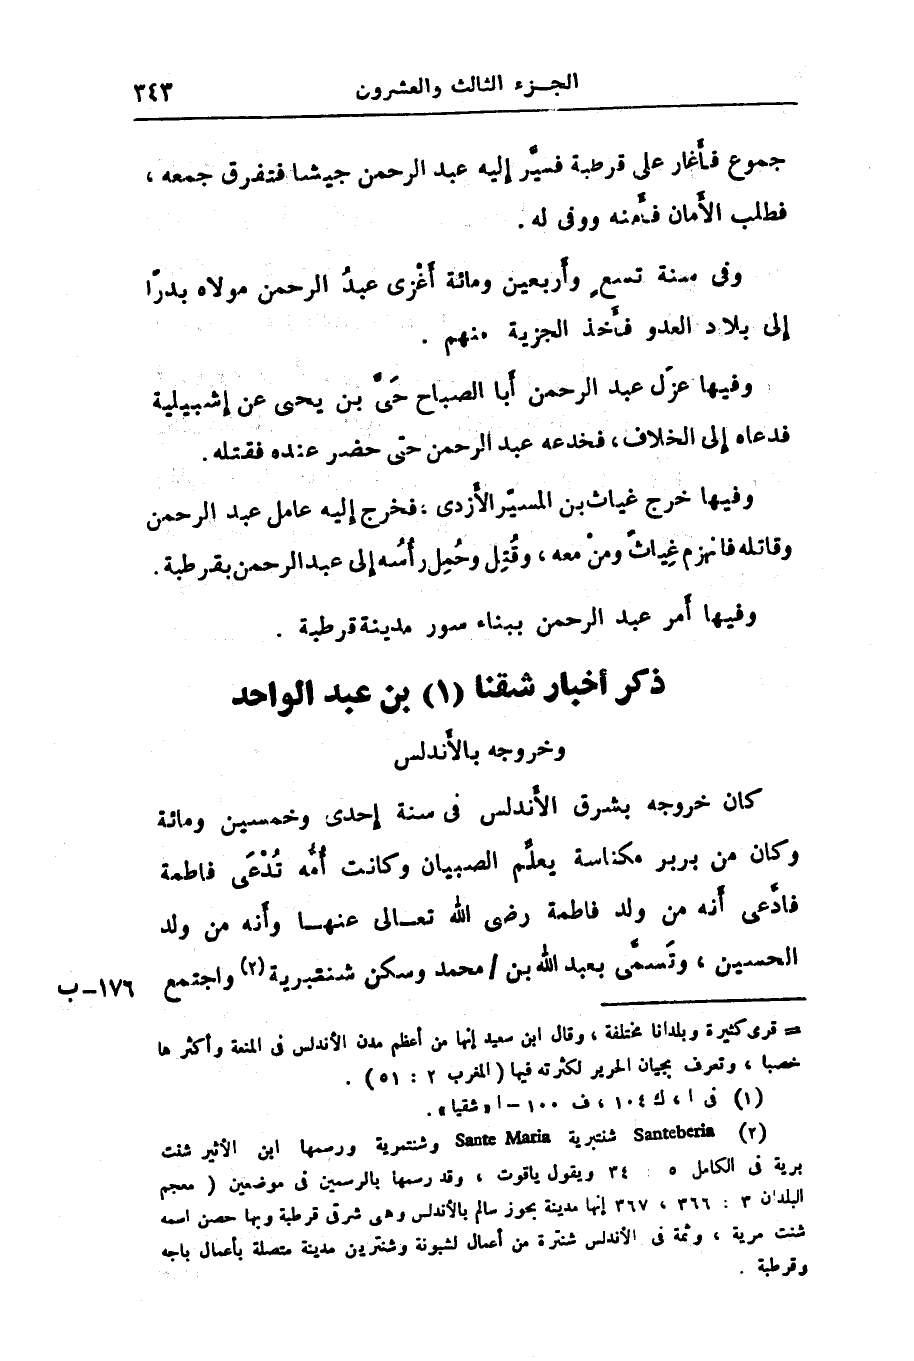 الجزء الثالث والعشرون
٣٤٣
جموع فأَغار على قرطبة فسيَّر إليه عبد الرحمن جيشا فتفرق جمعه ،
فطلب الأَمان فأَمنه ووفى له .
وفى سنة تسع وأَربعين ومائة أَغْزى عبدُ الرحمن مولاه بدرًا
إلى بلاد العدو فأَخذ الجزية منهم .
وفيها عزَل عبد الرحمن أَبا الصباح حَىَّ بن يحيى عن إشبيلية
فدعاه إلى الخلاف ، فخدعه عبد الرحمن حتّى حضر عنده فقتله .
وفيها خرج غياث بن المسيّر الأَزدى ، فخرج إليه عامل عبد الرحمن
وقاتله فانهزم غِياثٌ ومنْ معه ، وقُتِل وحُمِل رأْسُه إلى عبد الرحمن بقرطبة .
وفيها أَمر عبد الرحمن ببناء سور مدينة قرطبة .
ذكر أخبار شقنا (١) بن عبد الواحد
وخروجه بالأَندلس
كان خروجه بشرق الأَندلس فى سنة إحدى وخمسين ومائة
وكان من بربر مكناسة يعلَّم الصبيان وكانت أُمُّه تُدْعَى فاطمة
فادَّعى أَنه من ولد فاطمة رضى الله تعالى عنها وأَنه من ولد
الحسين ، وتَسمَّى بعبد الله بن / محمد وسكن شنقبرية (٢) واجتمع
١٧٦ــ ب
= قرى كثيرة وبلدانا مختلفة ، وقال ابن سعيد إنها من أعظم مدن الأندلس فى المنعة وأكثرها
خصبا ، وتعرف بجيان الحرير لكثرته فيها ( المغرب ٢ : ٥١ ) .
(١) فى ا ، ك ١٠٤ ، ف ١٠٠ – ا « شقيا » .
(٢) Santeberia شنتبرية Sante Maria وشنتمرية ورسمها ابن الأثير شنت
برية فى الكامل ٥ : ٣٤ ويقول ياقوت ، وقد رسمها بالرسمين فى موضعين ( معجم
البلدان ٣ : ٣٦٦ ، ٣٦٧ إنها مدينة بحوز سالم بالأندلس وهى شرقى قرطبة وبها حصن اسمه
شنت مرية ، وثمة فى الأندلس شنترة من أعمال لشبونة وشنترين مدينة متصلة بأعمال باجه
وقرطبة .